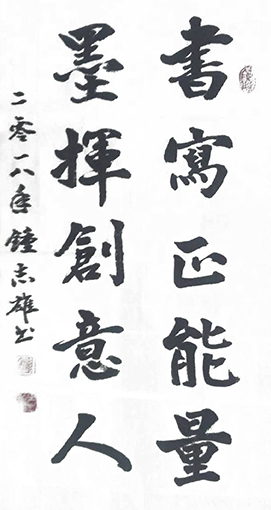 書寫正能量
墨揮創意人
二零一八年鐘志雄书